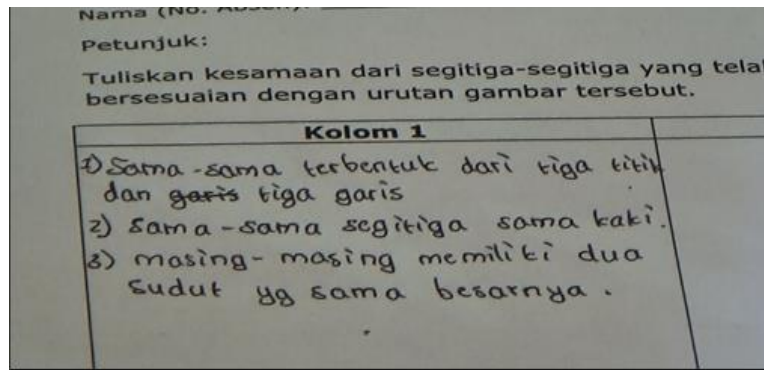 Nama (No. Absen):
Petunjuk:
Tuliskan kesamaan dari segitiga-segitiga yang tela
bersesuaian dengan urutan gambar tersebut.
Kolom 1
1) Sama-sama terbentuk dari tiga titik
dan garis tiga garis
2) sama-sama segitiga sama kaki.
3) masing-masing memiliki dua
sudut yg sama besarnya.